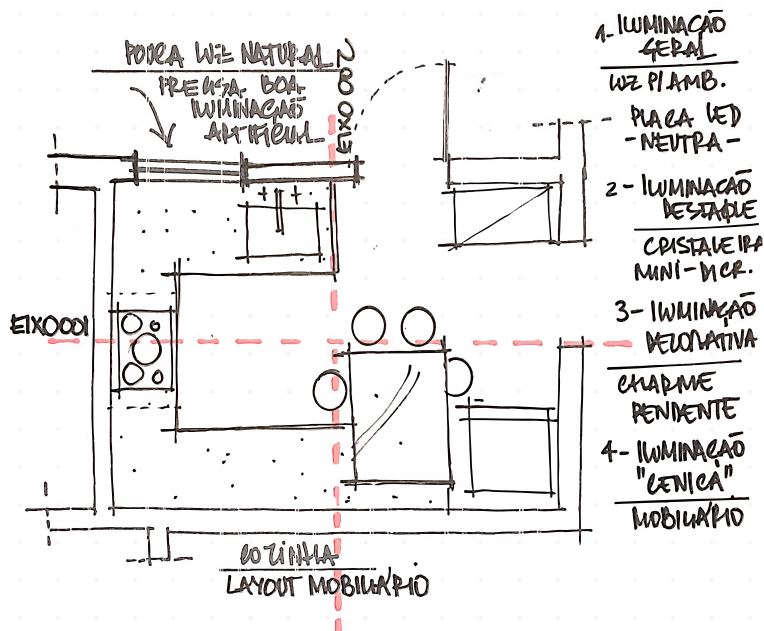 POUCA LUZ NATURAL
PRECISA BOA
ILUMINAÇÃO
ARTIFICIAL
EIXO 002
EIXO001
COZINHA
LAYOUT MOBILIÁRIO
1- ILUMINAÇÃO
GERAL
LUZ P/ AMB.
PLACA LED
-NEUTRA-
2- ILUMINAÇÃO
DESTAQUE
CRISTALEIRA
MINI-DICR.
3- ILUMINAÇÃO
DECORATIVA
CHARME
PENDENTE
4- ILUMINAÇÃO
"CENICA"
MOBILIÁRIO